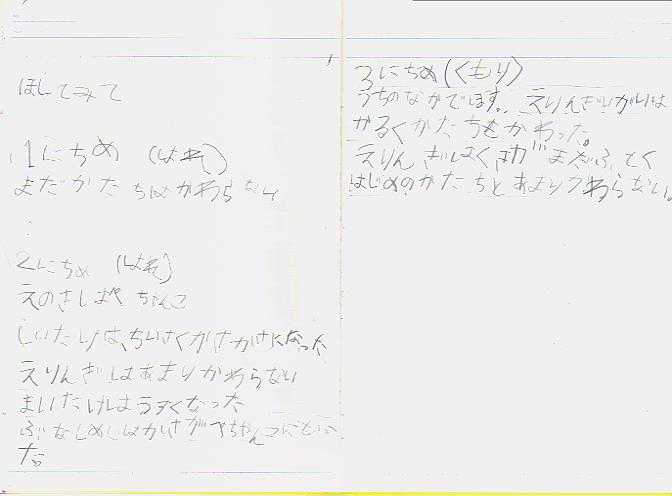 ほしてみて
1にちめ (はれ)
まだかたちはかわらない
2にちめ (はれ)
えのきしばやちゃんこ
しいたけは、ちいさくかさかさになった
えりんぎはあまりかわらない
まいたけはうすくなった
ぶなしめじはかさがぺちゃんこに
た。
3にちめ(くもり)
うちのなかでほす。えりんぎいがいは
かるくかたちもかわった。
えりんぎはくきがまだふとく
はじめのかたちとあまりかわらない。